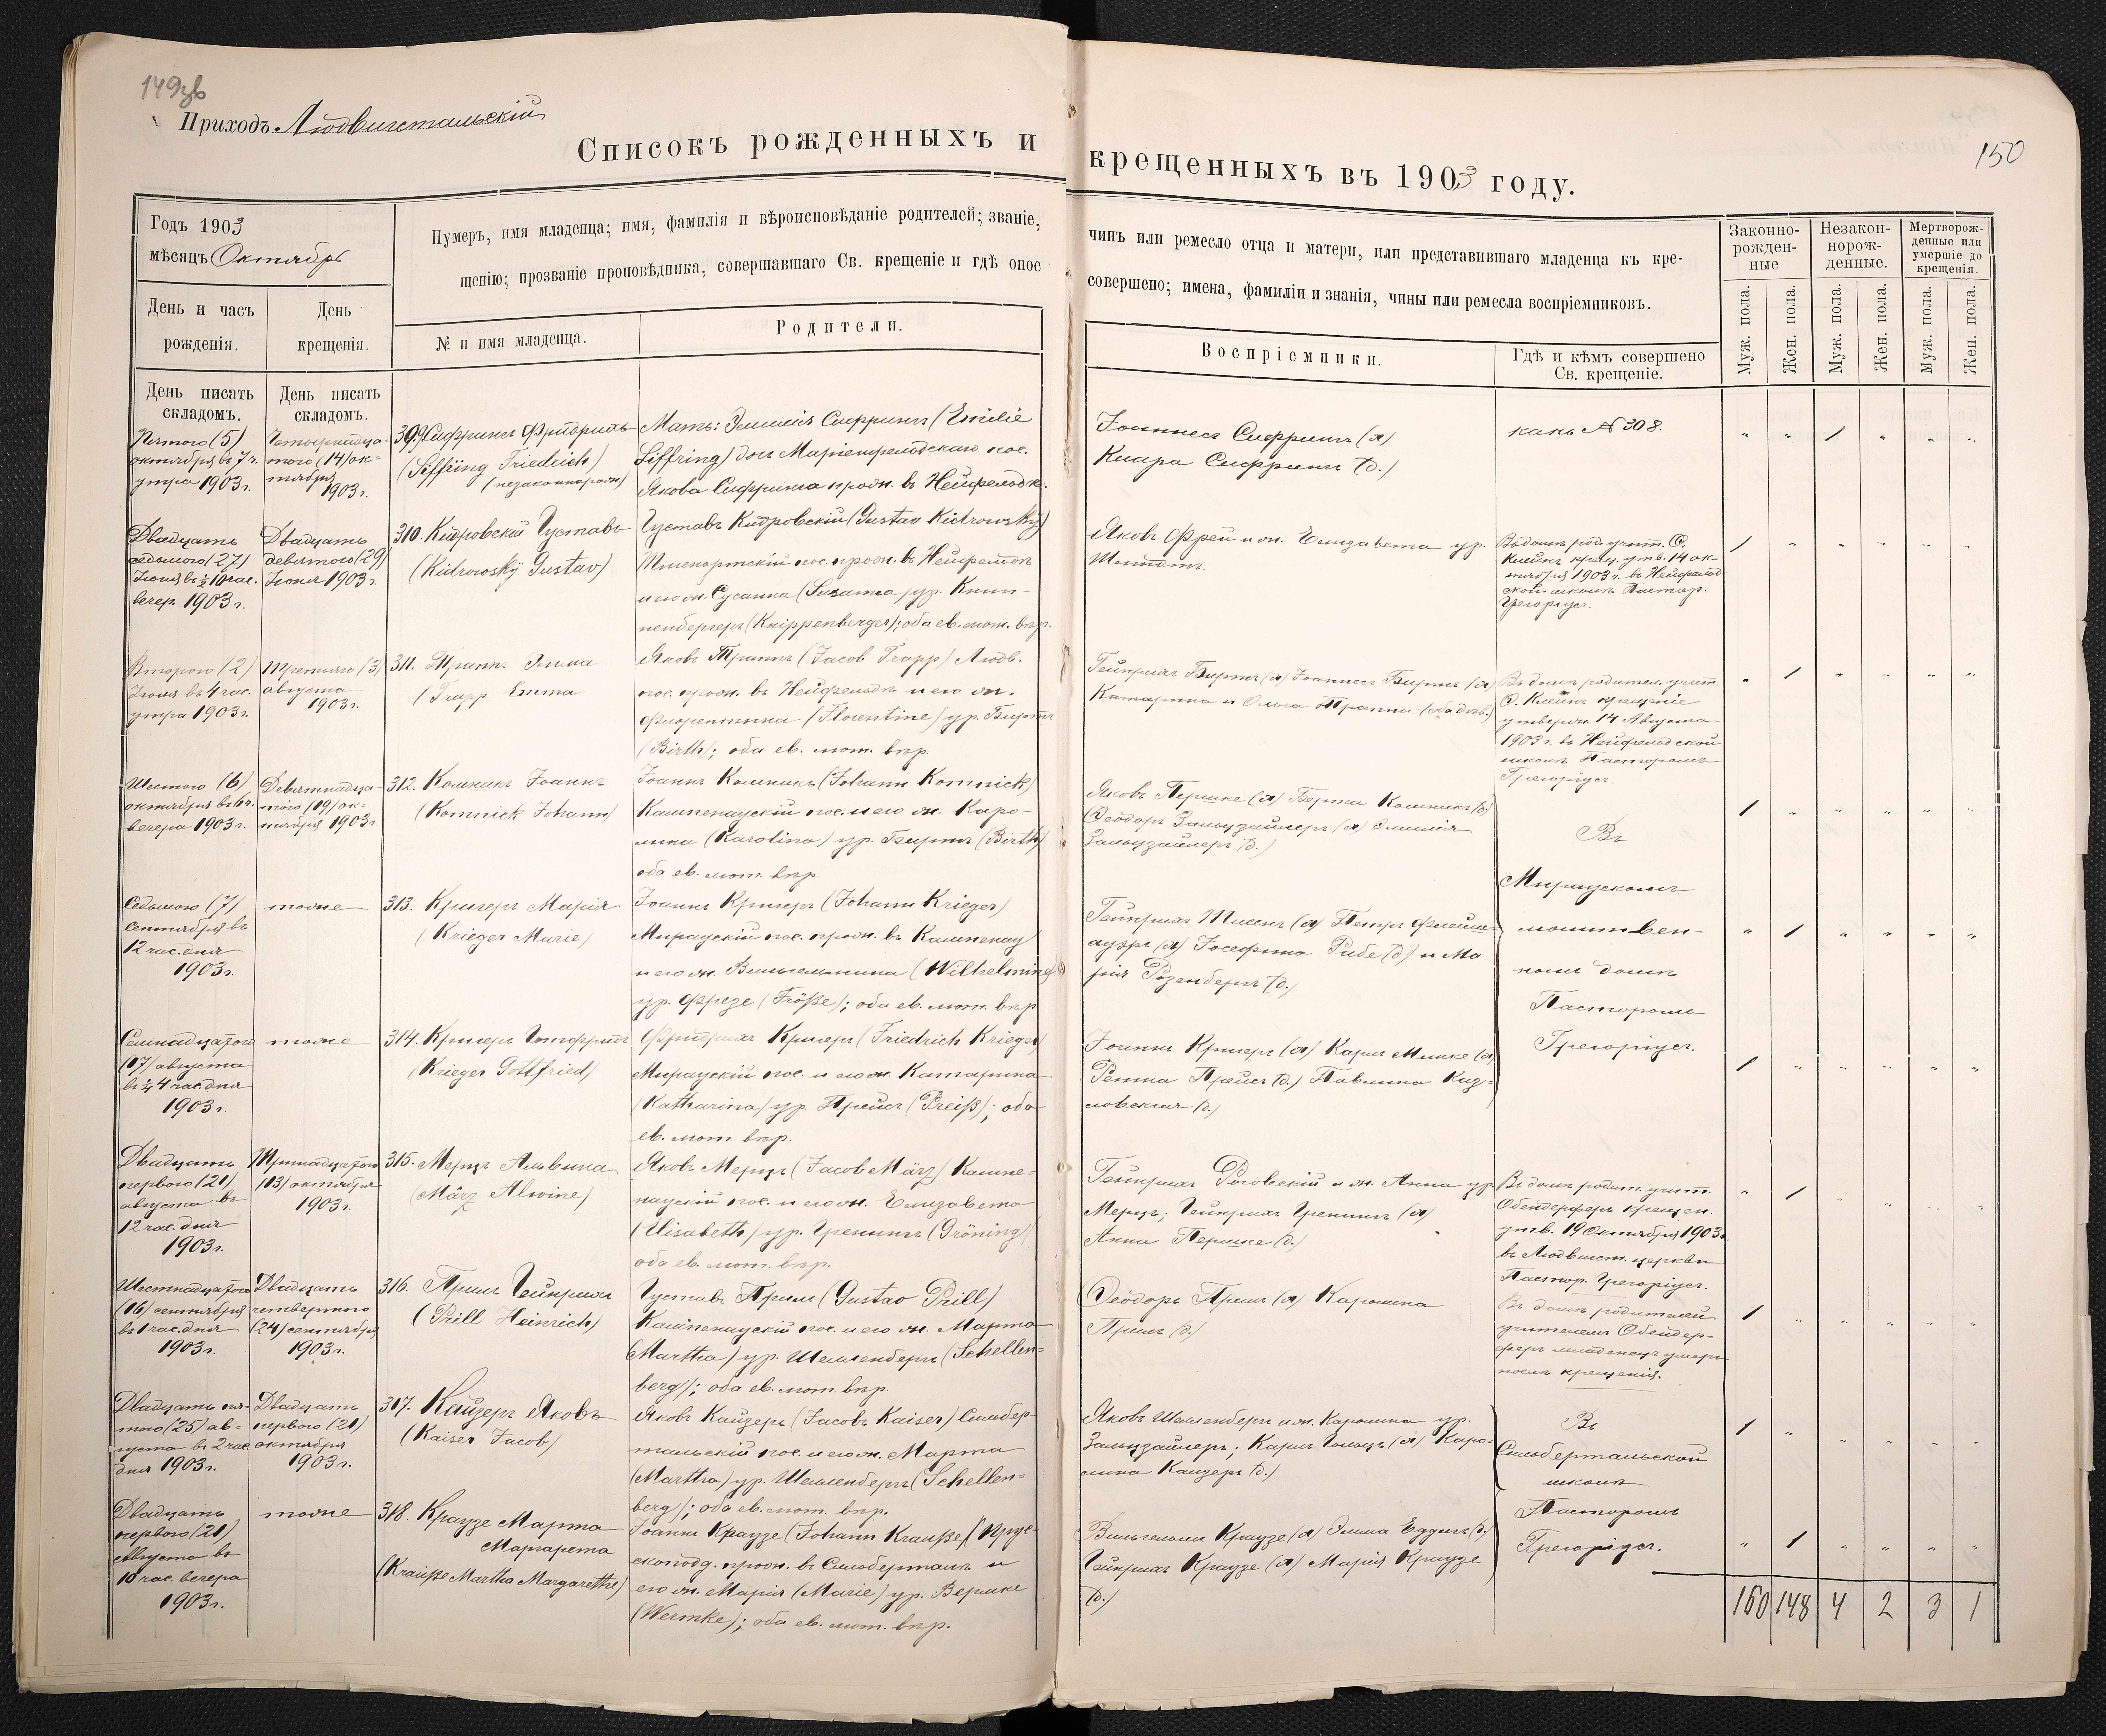 149об
Приходъ Людвигстальскій
150
Списокъ рожденныхъ и крещенныхъ въ 1903 году.
Годъ 1903
мѣсяцъ Октябрь
Нумеръ, имя младенца; имя, фамилія и вѣроисповѣданіе родителей; званіе,
чинъ или ремесло отца и матери, или представившаго младенца къ кре-
щенію; прозваніе проповѣдника, совершавшаго Св. крещеніе и гдѣ оное
совершено; имена, фамиліи и знанія, чины или ремесла воспріемниковъ.
День и часъ
рожденія.
День
крещенія.
№ и имя младенца.
Родители.
Воспріемники.
Гдѣ и кѣмъ совершено
Св. крещеніе.
Законно-
рожден-
ные
Незакон-
норож-
денные.
Мертворож-
денные или
умершіе до
крещенія.
Муж. пола.
Жен. пола.
Муж. пола.
Жен. пола.
Муж. пола.
Жен. пола.
День писать
складомъ.
День писать
складомъ.
Пятого (5)
октября въ 7 ч.
утра 1903 г.
Четырнадца-
того (14) ок-
тября
1903 г.
309. Сиффрингъ Фридрихъ
(Siffring Friedrich)
(незаконнорожд)
Мать: Эмилія Сиффрингъ (Emilie
Siffring) дочь Маріенфельдскаго пос.
Якова Сиффринга прож. въ Нейфельдѣ.
Іоганнесъ Сиффрингъ (х)
Клара Сиффрингъ (д.)
какъ № 308.
Двадцать
седьмого (27)
Іюня въ ½ 10 час.
вечер. 1903 г.
Двадцать
девятого (29)
Іюня 1903 г.
310. Кидровскій Густавъ
(Kidrowsky Gustav)
Густавъ Кидровскій (Gustav Kidrowsky)
пос. прож. въ Нейфельдѣ
и его ж. Сусанна (Susanna) ур. Книп-
пенбергеръ (Knippenberger); оба ев. лют. вѣр.
Яковъ Фрей и ж. Елизавета ур.
Въ домѣ род. учит. Ф.
Клейнъ крещ. утв. 14 ок-
тября 1903 г. въ Нейфельд
ской школѣ Пастор.
Грегоріусъ.
Второго (2)
Іюля въ 4 час.
утра 1903 г.
Третьяго (3)
августа
1903 г.
311. Траппъ Эмма
(Trapp Emma
Яковъ Траппъ (Jacob Trapp) Людв.
пос. прож. въ Нейфельдѣ и его ж.
Флорентина (Florentine) ур. Биртъ
(Birth); оба ев. лют. вѣр.
Гейнрихъ Биртъ (х) Іоганнесъ Биртъ (х)
Катарина и Ольга Траппъ (оба дѣв.)
Въ домѣ родител. учит.
Ф. Клейнъ крещеніе
утвержд. 14 Августа
1903 г. въ Нейфельдской
школѣ Пасторомъ
Грегоріусъ.
Шестого (6)
октября въ 6 ч.
вечера 1903 г.
Девятнадца-
того (19) ок-
тября 1903 г.
312. Комникъ Іоганнъ
(Komnick Johann)
Іоганнъ Комникъ (Johann Komnick)
Кампенаускій пос. и его ж. Каро-
лина (Karolina) ур. Биртъ (Birth)
оба ев. лют. вѣр.
Яковъ Першке (х) Берта Комникъ (д.)
Ѳеодоръ Зальцзайлеръ (х) Эмилія
Зальцзайлеръ (д.)
Въ
Мираускомъ
молитвен-
номъ домѣ
Пасторомъ
Грегоріусъ.
Седьмого (7)
Сентября въ
12 час. дня
1903 г.
тоже
313. Кригеръ Марія
(Krieger Marie)
Іоганнъ Кригеръ (Johann Krieger)
Мирауcкій пос. прож. въ Кампенау
и его ж. Вильгельмина (Wilhelmine)
ур. Фрезе (Fröße); оба ев. лют. вѣр.
Гейнрихъ Тиссенъ (х) Петръ Флейш-
ауэръ (х) Іосефина Рибе (д.) и Ма
рія Розенбергъ (д.)
Семнадцатого
(17) августа
въ ¼ 4 час. дня
1903 г.
тоже
314. Кригеръ Готфридъ
(Krieger Gottfried)
Фридрихъ Кригеръ (Friedrich Krieger)
Мирауcкій пос. и его ж. Катарина
(Katharina) ур. Прейсъ (Preiß); оба
ев. лют. вѣр.
Іоганнъ Кригеръ (х) Карлъ Мильке (х)
Прейсъ (д.) Павлина Коз-
ловская (д.)
Двадцать
первого (21)
августа въ
12 час. дня
1903 г.
Тринадцатого
(13) октября
1903 г.
315. Мерцъ Альвина
(März Alwine)
Яковъ Мерцъ (Jacob März) Кампе-
наускій пос. и его ж. Елизавета
(Elisabeth) ур. Гренингъ (Gröning)
оба ев. лют. вѣр.
Гейнрихъ Роговскій и ж. Анна ур.
Мерцъ; Гейнрихъ Гренингъ (х)
Анна Першке (д.)
Въ домѣ родит. учит.
Обендерферъ крещен.
утв. 19 Октября 1903 г.
въ Людвигст. церкви
Пастор. Грегоріусъ.
Шестнадцатого
(16) сентября
въ 1 час. дня
1903 г.
Двадцать
четвертого
(24) сентября
1903 г.
316.Приль Гейнрихъ
(Prill Heinrich)
Густавъ Приль (Gustav Prill)
Кампенаускій пос. и его ж. Марта
(Martha) ур. Шелленбергъ (Schellen-
berg); оба ев. лют. вѣр.
Ѳеодоръ Приль (х) Каролина
Приль (д.)
Въ домѣ родителей
учителемъ Обендер-
феръ младенецъ умеръ
послѣ крещенія.
Двадцать пя-
того (25) ав-
густа въ 2 час.
дня 1903 г.
Двадцать
первого (21)
октября
1903 г.
317. Кайзеръ Яковъ
(Kaiser Jacob)
Яковъ Кайзеръ (Jacob Kaiser) Сильбер-
тальскій пос. и его ж. Марта
(Martha) ур. Шелленбергъ (Schellen-
berg); оба ев. лют. вѣр.
Яковъ Шелленбергъ и ж. Каролина ур.
Зальцзайлеръ; Карлъ Гольцъ (х) Каро-
лина Кайзеръ (д.)
Въ
Сильбертальской
школѣ
Пасторомъ
Грегоріусъ.
Двадцать
первого (21)
Августа въ
10 час. вечера
1903 г.
тоже
318. Краузе Марта
Маргарета
(Krauße Martha Margarethe)
Іоганнъ Краузе (Johann Krauße) Прус-
скоподд. прож. въ Сильберталѣ и
его ж. Марія (Marie) ур. Вермке
(Wermke); оба ев. лют. вѣр.
Вильгельмъ Краузе (х) Эмма Еддигъ (д.)
Гейнрихъ Краузе (х) Марія Краузе
(д.)
160 148 4 2 3 1